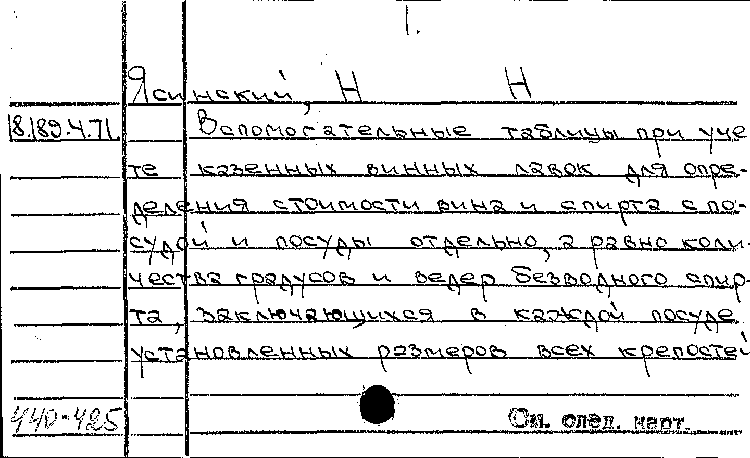 1.
Ясинский, Н Н
18.189.4.71 Вспомогательные таблицы при уче
те казенных винных лавок для опре-
деления стоимости вина и спирта с по-
судой и посуды отдельно, а равно коли-
чества градусов и ведер безводного спир-
та, заключающихся в каждой посуде
установленных размеров всех крепостей
440-425 См. след. карт.